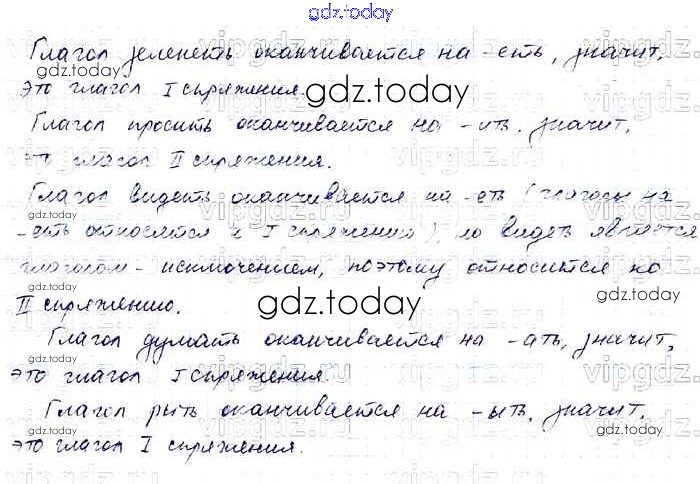 gdz.today
Глагол зеленеть оканчивается на -еть, значит,
это глагол I спряжения.
Глагол просить оканчивается на -ить, значит,
это глагол II спряжения.
Глагол видеть оканчивается на -еть (глаголы на
-еть относятся к I спряжению), но видеть является
глаголом - исключением, поэтому относится ко
II спряжению.
Глагол думать оканчивается на -ать, значит,
это глагол I спряжения.
Глагол рыть оканчивается на -ыть, значит,
это глагол I спряжения.